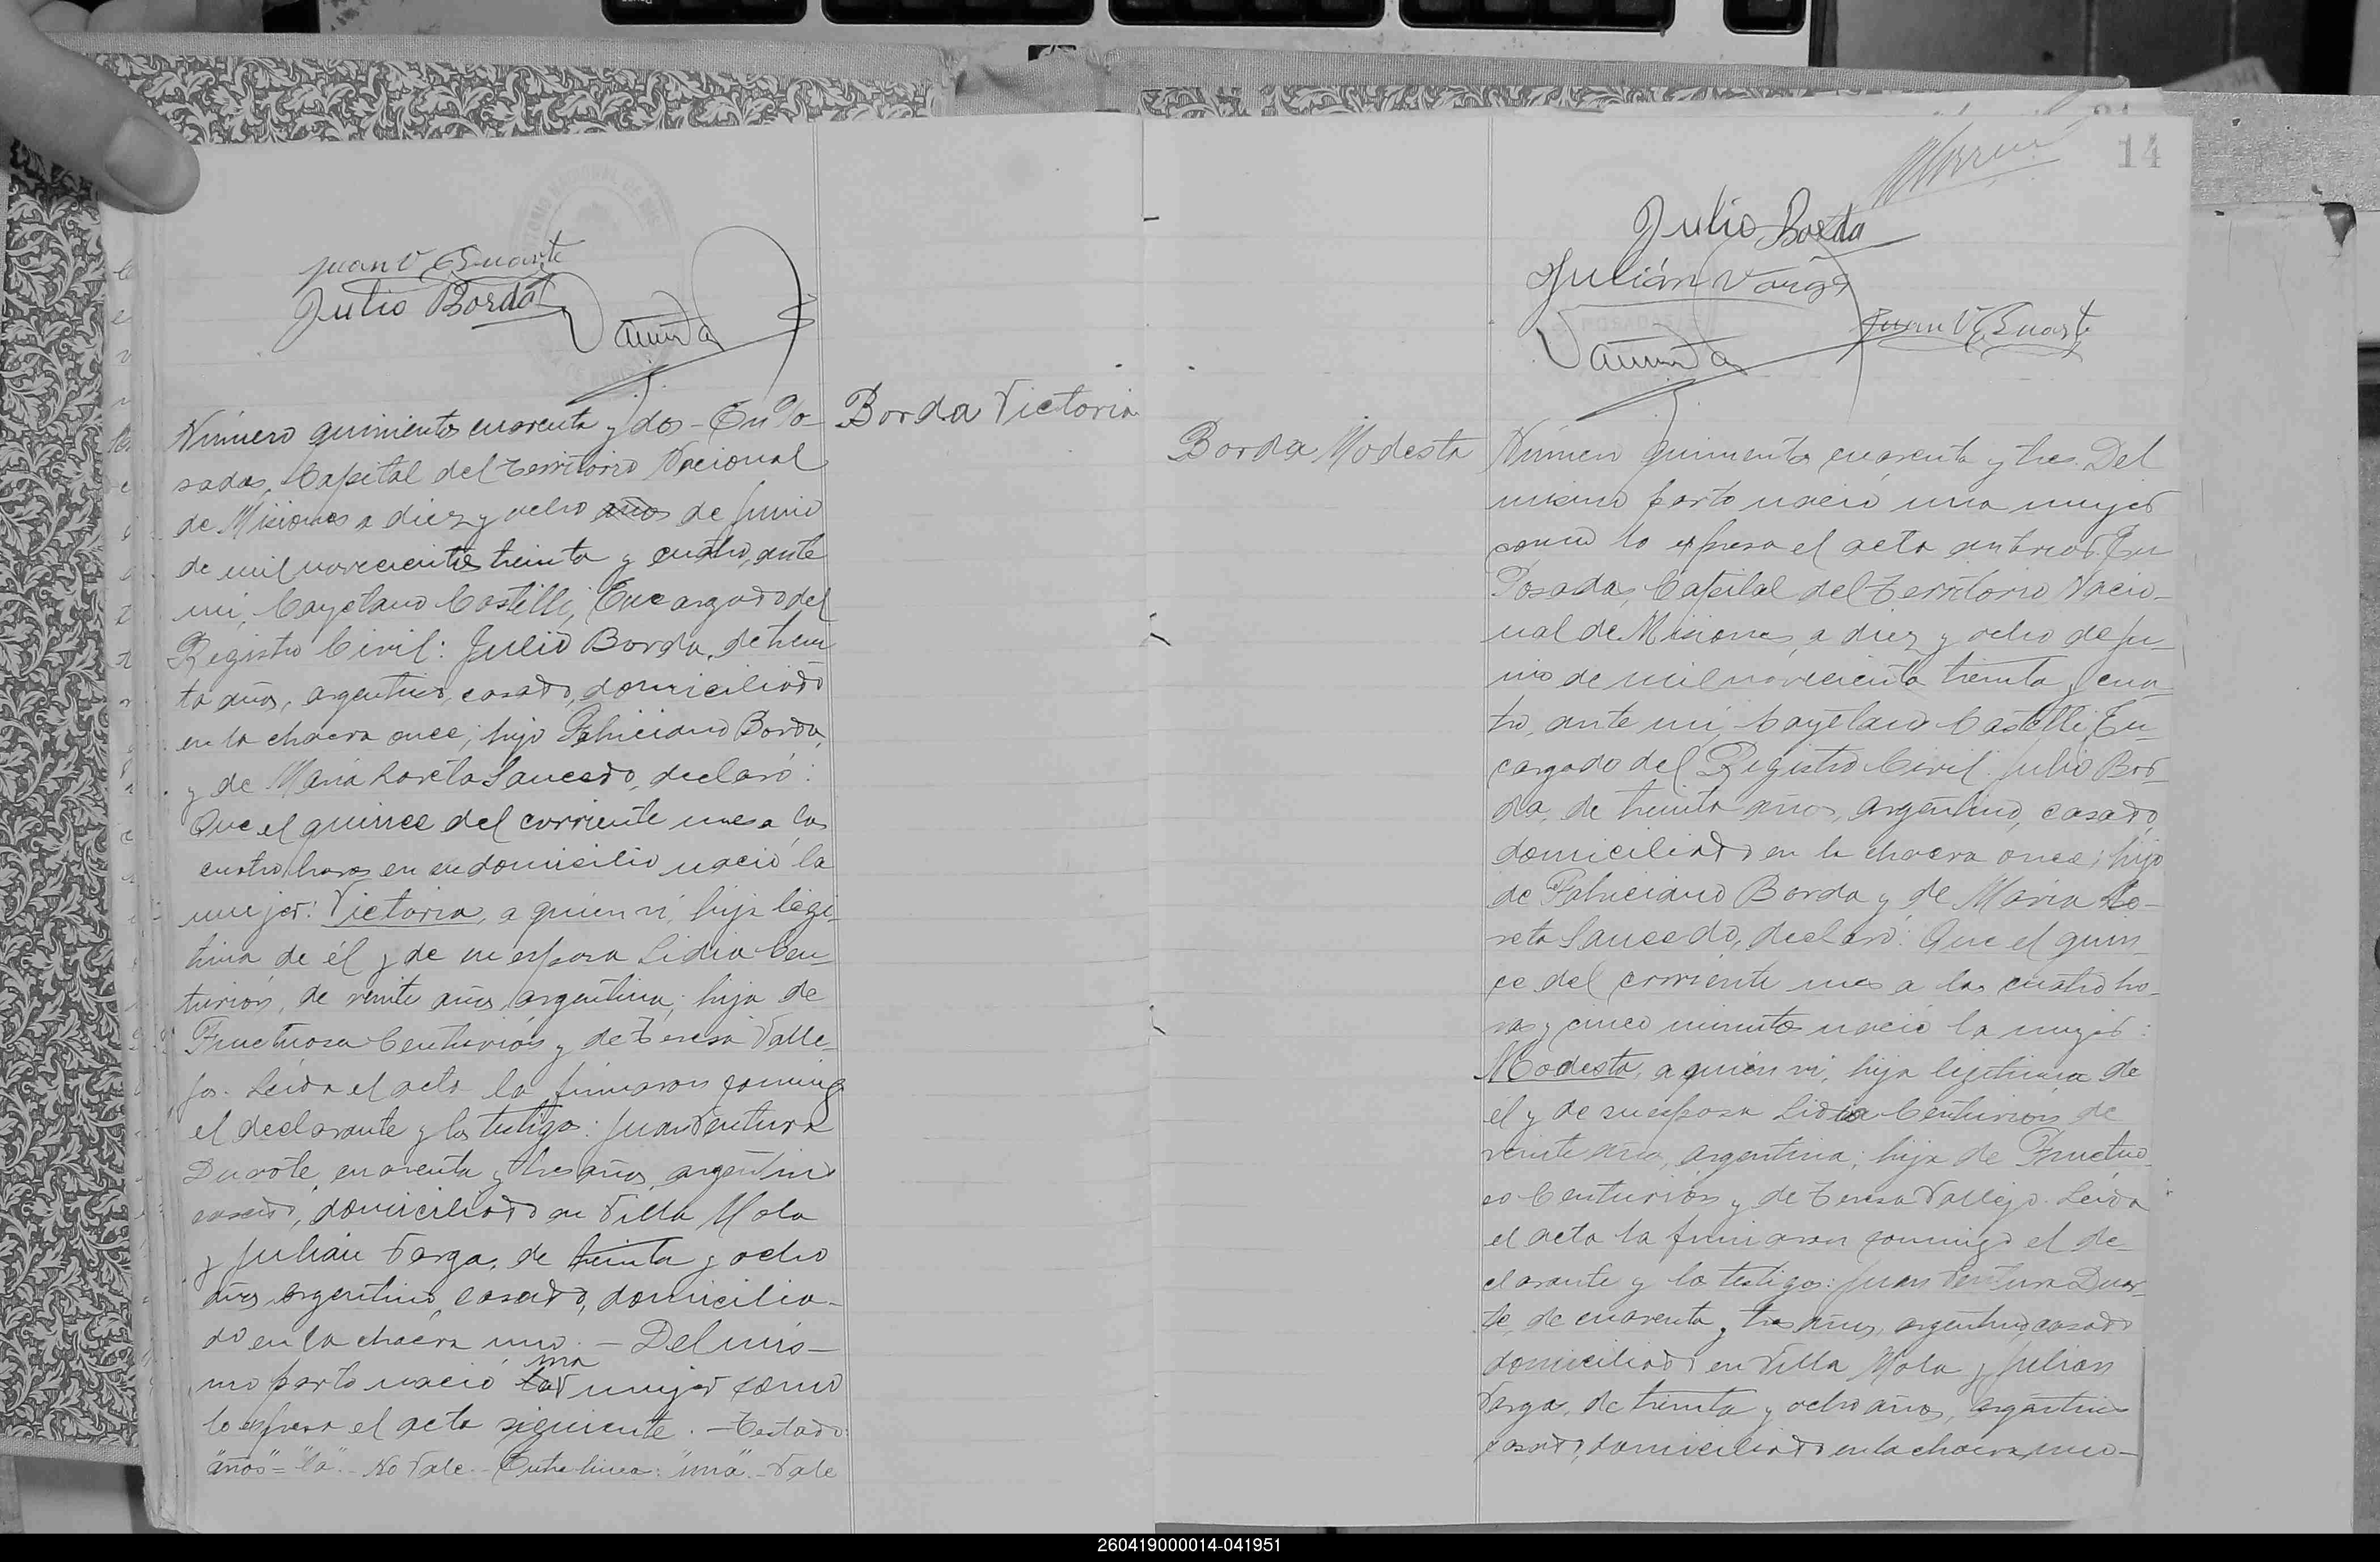 Juan V. Duarte
Julio Borda
Número quinientos cuarenta y dos - En Po-
sadas, Capital del Territorio Nacional
de Misiones a diez y ocho años de Junio
de mil novecientos treinta y cuatro, ante
mi, Cayetano Castelli, Encargado del
Registro Civil: Julio Borda, de trein
ta años, argentino, casado, domiciliado
en la chacra once; hijo Patriciano Borda,
y de Maria Loreta Saucedo, declaró:
Que el quince del corriente mes a las
cuatro horas en su domicilio nació la
mujer: Victoria, a quien vi, hija legi-
tima de él y de su esposa Lidia Cen-
turión, de veinte años, argentina; hija de
Fructuoso Centurión y de Teresa Valle-
jos. Leida el acta la firmaron conmigo
el declarante y los testigos: Juan Ventura
Duarte, cuarenta y tres años, argentino
casado, domiciliado en Villa Mola
y Julián Varga, de treinta y ocho
años argentino, casado, domicilia-
do en la chacra uno. - Del mis-
una
mo parto nació la mujer como
lo expresa el acta siguiente. - Testado:
"años" = "la" - No Vale - Entre linea: "una" - Vale
Borda Victoria
14
Julio Borda
Julián Varga
Juan V. Duarte
Borda Modesta
Número quinientos cuarenta y tres. Del
mismo parto nació una mujer
como lo expresa el acta anterior. En
Posadas, Capital del Territorio Nacio-
nal de Misiones, a diez y ocho de Ju-
nio de mil novecientos treinta y cua-
tro, ante mi, Cayetano Castelli, En-
cargado del Registro Civil: Julio Bor-
da, de treinta años, argentino, casado,
domiciliado en la chacra once; hijo
de Patriciano Borda y de Maria Lo-
reta Saucedo, declaró: Que el quin
ce del corriente mes a las cuatro ho-
ras y cinco minutos nació la mujer:
Modesta, a quien vi, hija legitima de
él y de su esposa Lidia Centurión de
veinte años, argentina; hija de Fructuo-
so Centurión y de Teresa Vallejo. Leida
el acta la firmaron conmigo el de-
clarante y los testigos: Juan Ventura Duar-
te, de cuarenta y tres años, argentino, casado
domiciliado en Villa Mola y Julian
Varga, de treinta y ocho años, argentino
casado, domiciliado en la chacra uno-
260419000014-041951